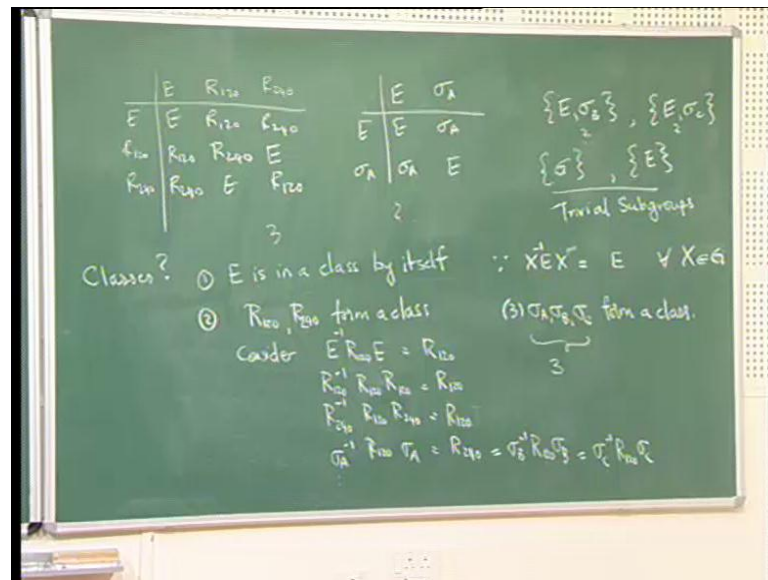 E R₁₂₀ R₂₄₀
E E R₁₂₀ R₂₄₀
R₁₂₀ R₁₂₀ R₂₄₀ E
R₂₄₀ R₂₄₀ E R₁₂₀
3
E σ_A
E E σ_A
σ_A σ_A E
2
{E,σ_B} , {E,σ_C}
2 2
{G} , {E}
Trivial Subgroups
Classes? ① E is in a class by itself ∵ X⁻¹EX = E ∀ X∈G
② R₁₂₀, R₂₄₀ form a class
Consider E⁻¹R₁₂₀E = R₁₂₀
R₁₂₀⁻¹ R₁₂₀ R₁₂₀ = R₁₂₀
R₂₄₀⁻¹ R₁₂₀ R₂₄₀ = R₁₂₀
σ_A⁻¹ R₁₂₀ σ_A = R₂₄₀ = σ_B⁻¹ R₁₂₀ σ_B = σ_C⁻¹ R₁₂₀ σ_C
(3) σ_A, σ_B, σ_C form a class.
3